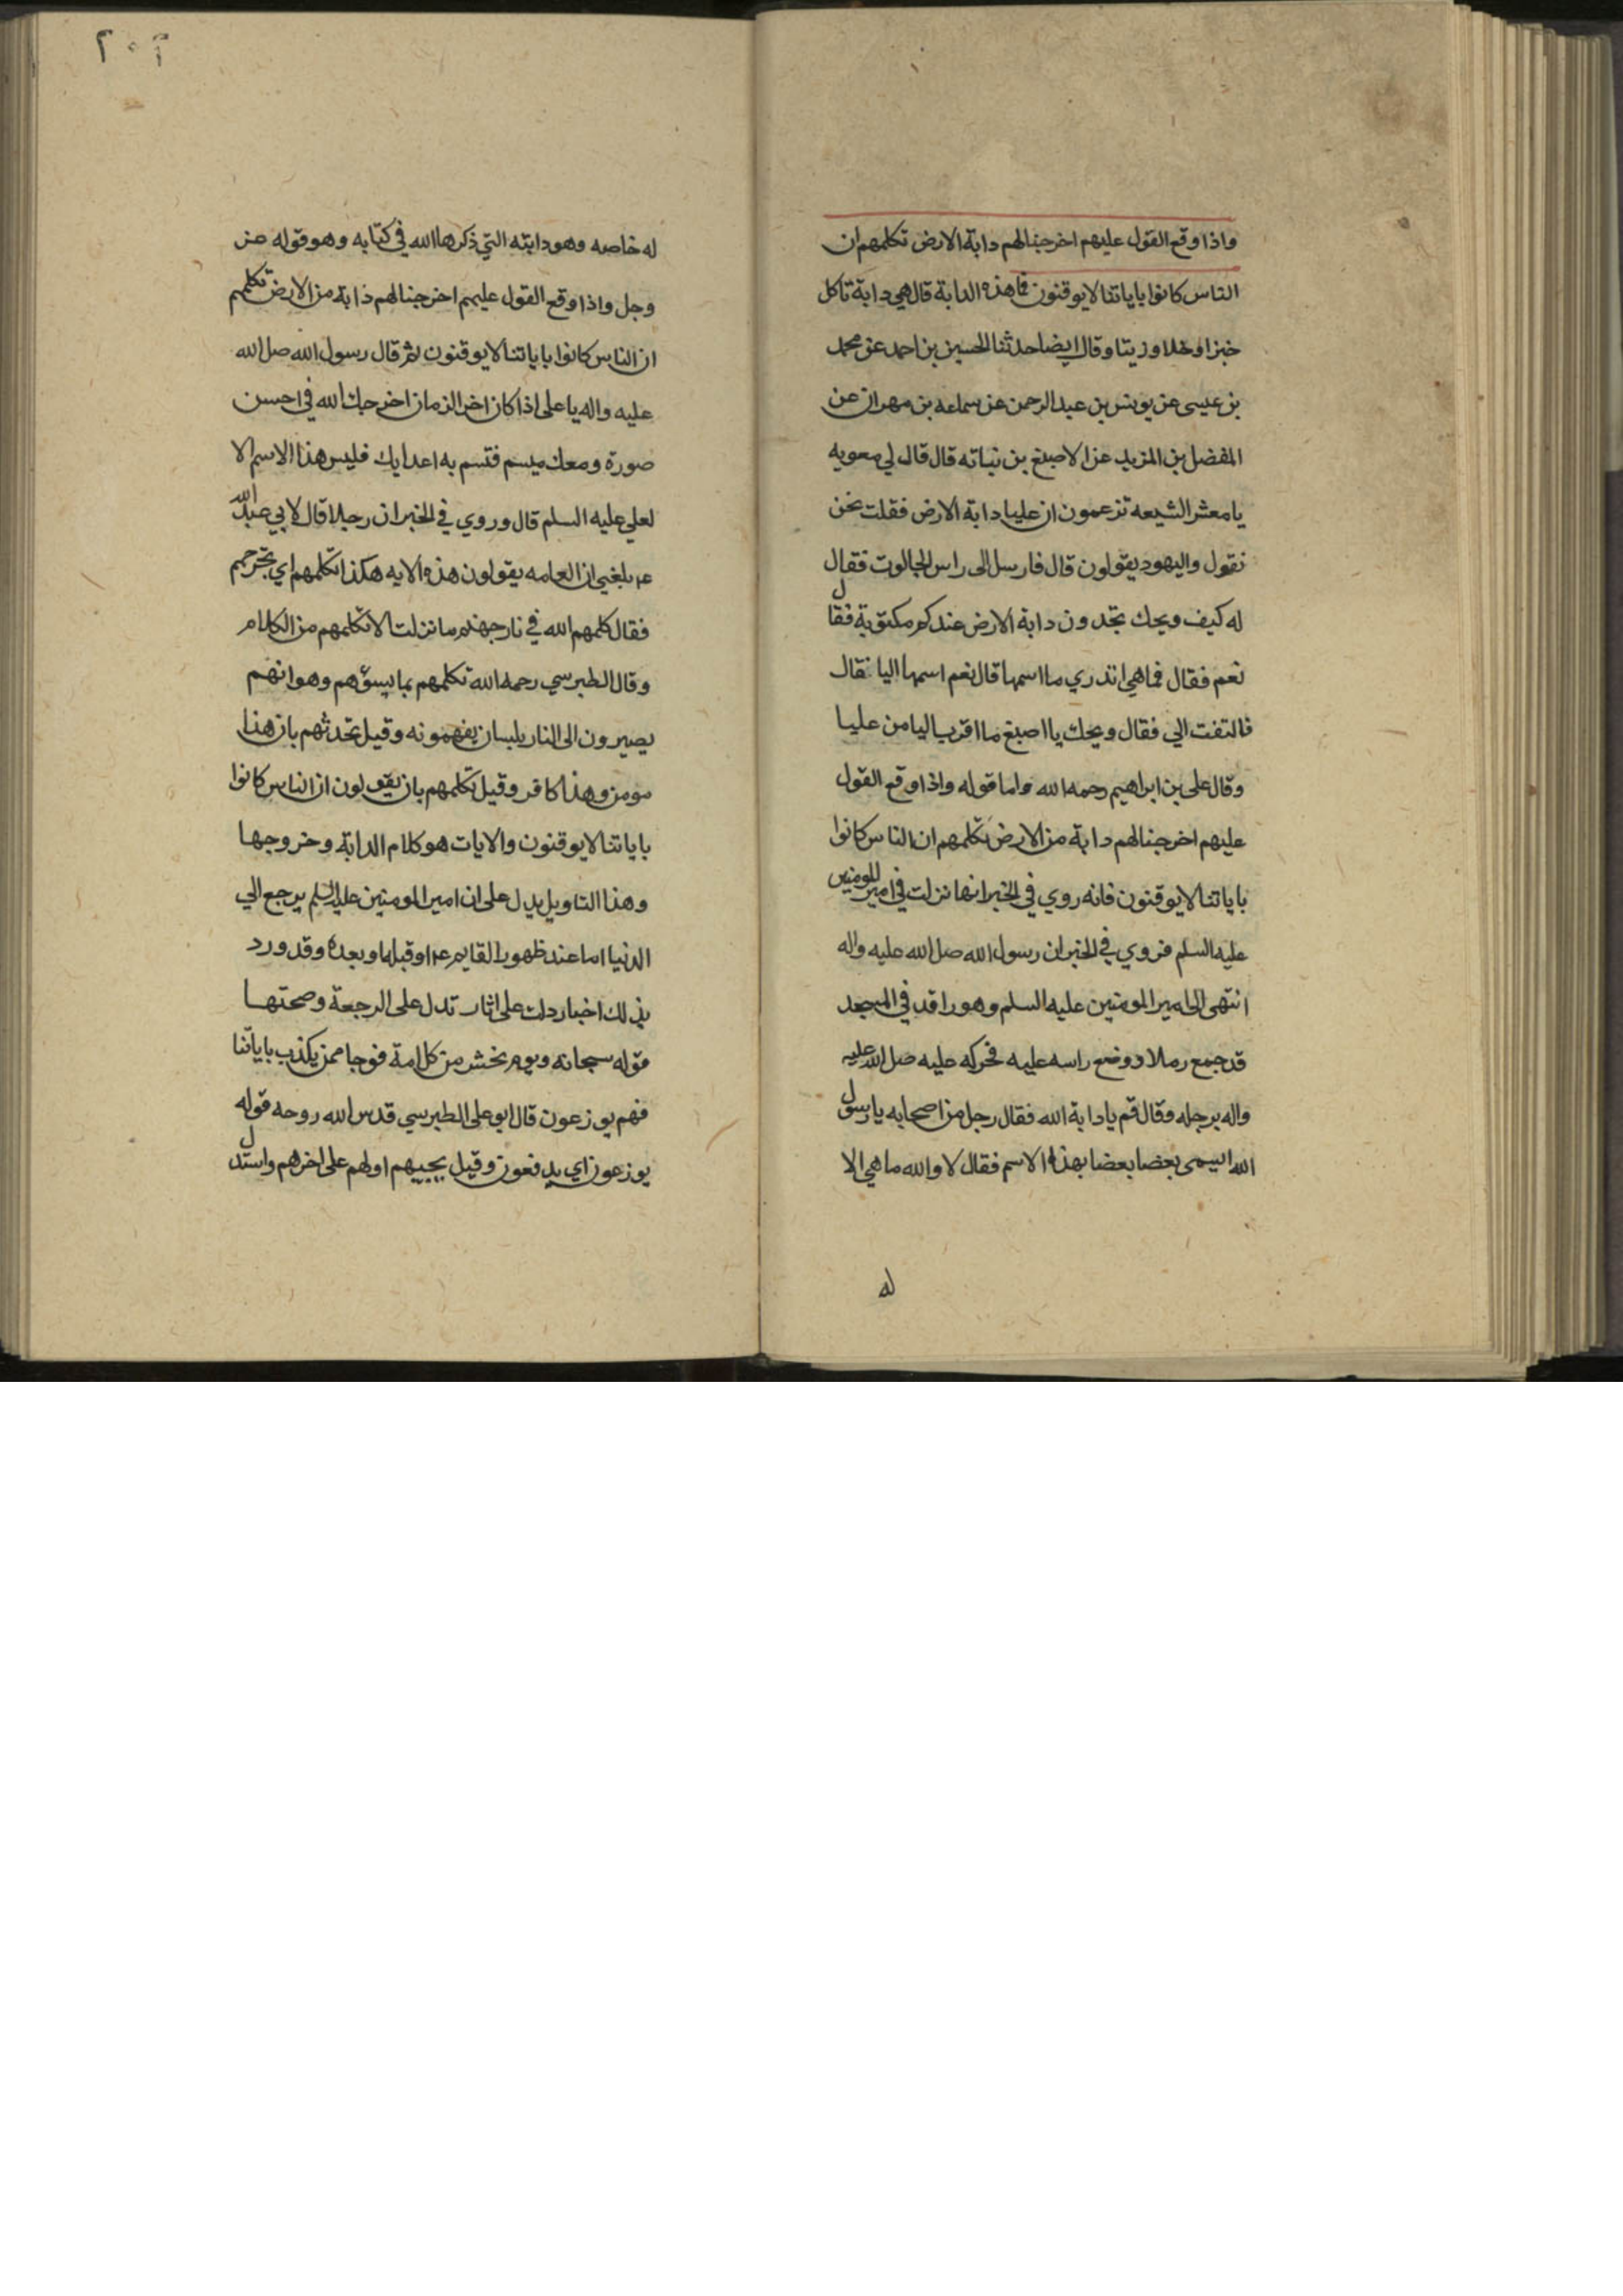 واذا وقع القول عليهم اخرجنا لهم دابة الارض تكلمهم ان
الناس كانوا باياتنا لا يوقنون فما هذه الدابة قال هي دابة تاكل
خبزا وخلا وزيتا وقال ايضا حدثنا الحسين بن احمد عن محمد
بن عيسى عن يونس بن عبد الرحمن عن سماعه بن مهران عن
المفضل بن المزيد عن الاصبغ بن نباته قال قال لي معويه
يا معشر الشيعه تزعمون ان عليا دابة الارض فقلت نحن
نقول واليهود يقولون قال فارسل الى راس الجالوت فقال
له كيف ويحك تجدون دابة الارض عندكم مكتوبة فقال
نعم فقال فما هي اتدري ما اسمها قال نعم اسمها اليا فقال
فالتفت الي فقال ويحك يا اصبغ ما اقرب اليا من عليا
وقال علي بن ابراهيم رحمه الله واما قوله واذا وقع القول
عليهم اخرجنا لهم دابة من الارض تكلمهم ان الناس كانوا
باياتنا لا يوقنون فانه روي في الخبر انها نزلت في امير المومنين
عليه السلم فروي في الخبر ان رسول الله صل الله عليه واله
انتهى الى امير المومنين عليه السلم وهو راقد في المسجد
قد جمع رملا ووضع راسه عليه فحركه عليه صل الله عليه
واله برجله وقال قم يا دابة الله فقال رجل من اصحابه يا رسول
الله ايسمى بعضا بعضا بهذا الاسم فقال لا والله ما هي الا
له
٢٠٢
له خاصه وهو دابته التي ذكرها الله في كتابه وهو قوله عز
وجل واذا وقع القول عليهم اخرجنا لهم دابة من الارض تكلمهم
ان الناس كانوا باياتنا لا يوقنون ثم قال رسول الله صل الله
عليه واله يا علي اذا كان اخر الزمان اخرجك الله في احسن
صورة ومعك ميسم فتسم به اعدايك فليس هذا الاسم الا
لعلي عليه السلم قال وروي في الخبر ان رجلا قال لابي عبد الله
عم بلغني ان العامه يقولون هذه الايه هكذا تكلمهم اي تجرحهم
فقال كلمهم الله في نار جهنم ما نزلت الا تكلمهم من الكلام
وقال الطبرسي رحمه الله تكلمهم بما يسؤهم وهو انهم
يصيرون الى النار بلسان يفهمونه وقيل تحدثهم بان هذا
مومن وهذا كافر وقيل تكلمهم بان يقولون ان الناس كانوا
باياتنا لا يوقنون والايات هو كلام الدابة وخروجها
وهذا التاويل يدل على ان امير المومنين عليه السلم يرجع الي
الدنيا اما عند ظهور القايم عم او قبله او بعده وقد ورد
بذلك اخبار دلت على اثار تدل على الرجعة وصحتها
قوله سبحانه ويوم نحشر من كل امة فوجا ممن يكذب باياتنا
فهم يوزعون قال ابو علي الطبرسي قدس الله روحه قوله
يوزعون اي يدفعون وقيل يحبيهم اولهم على اخرهم واستدل